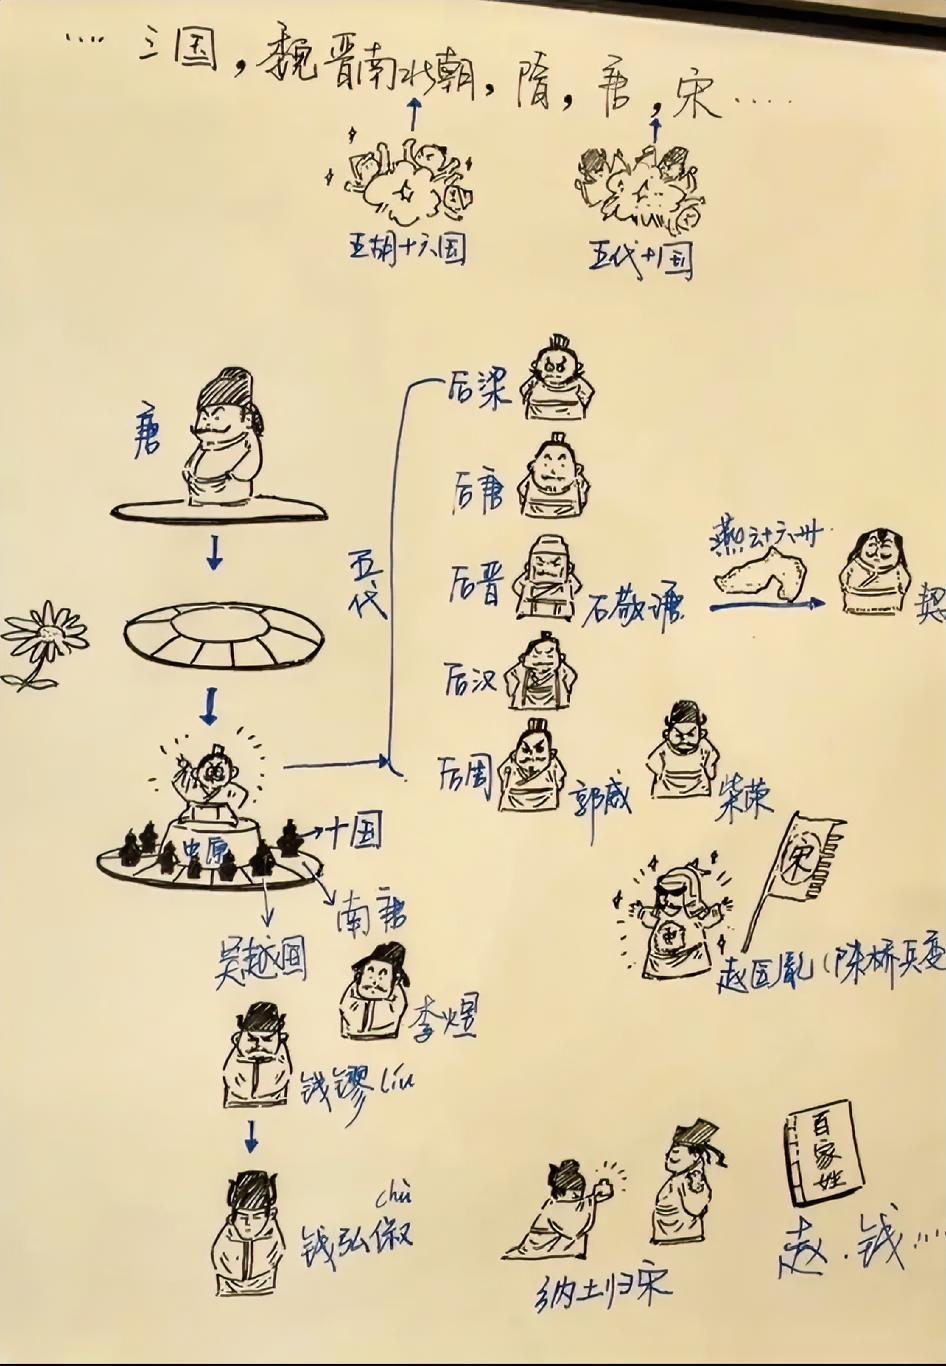 ……三国，魏晋南北朝，隋，唐，宋……
五胡十六国
五代十国
唐
五代
后梁
后唐
后晋
石敬瑭
燕云十六州
契
后汉
后周
郭威
柴荣
中原
十国
南唐
吴越国
李煜
钱镠 liu
chù
钱弘俶
宋
赵匡胤（陈桥兵变
纳土归宋
百家姓
赵·钱……